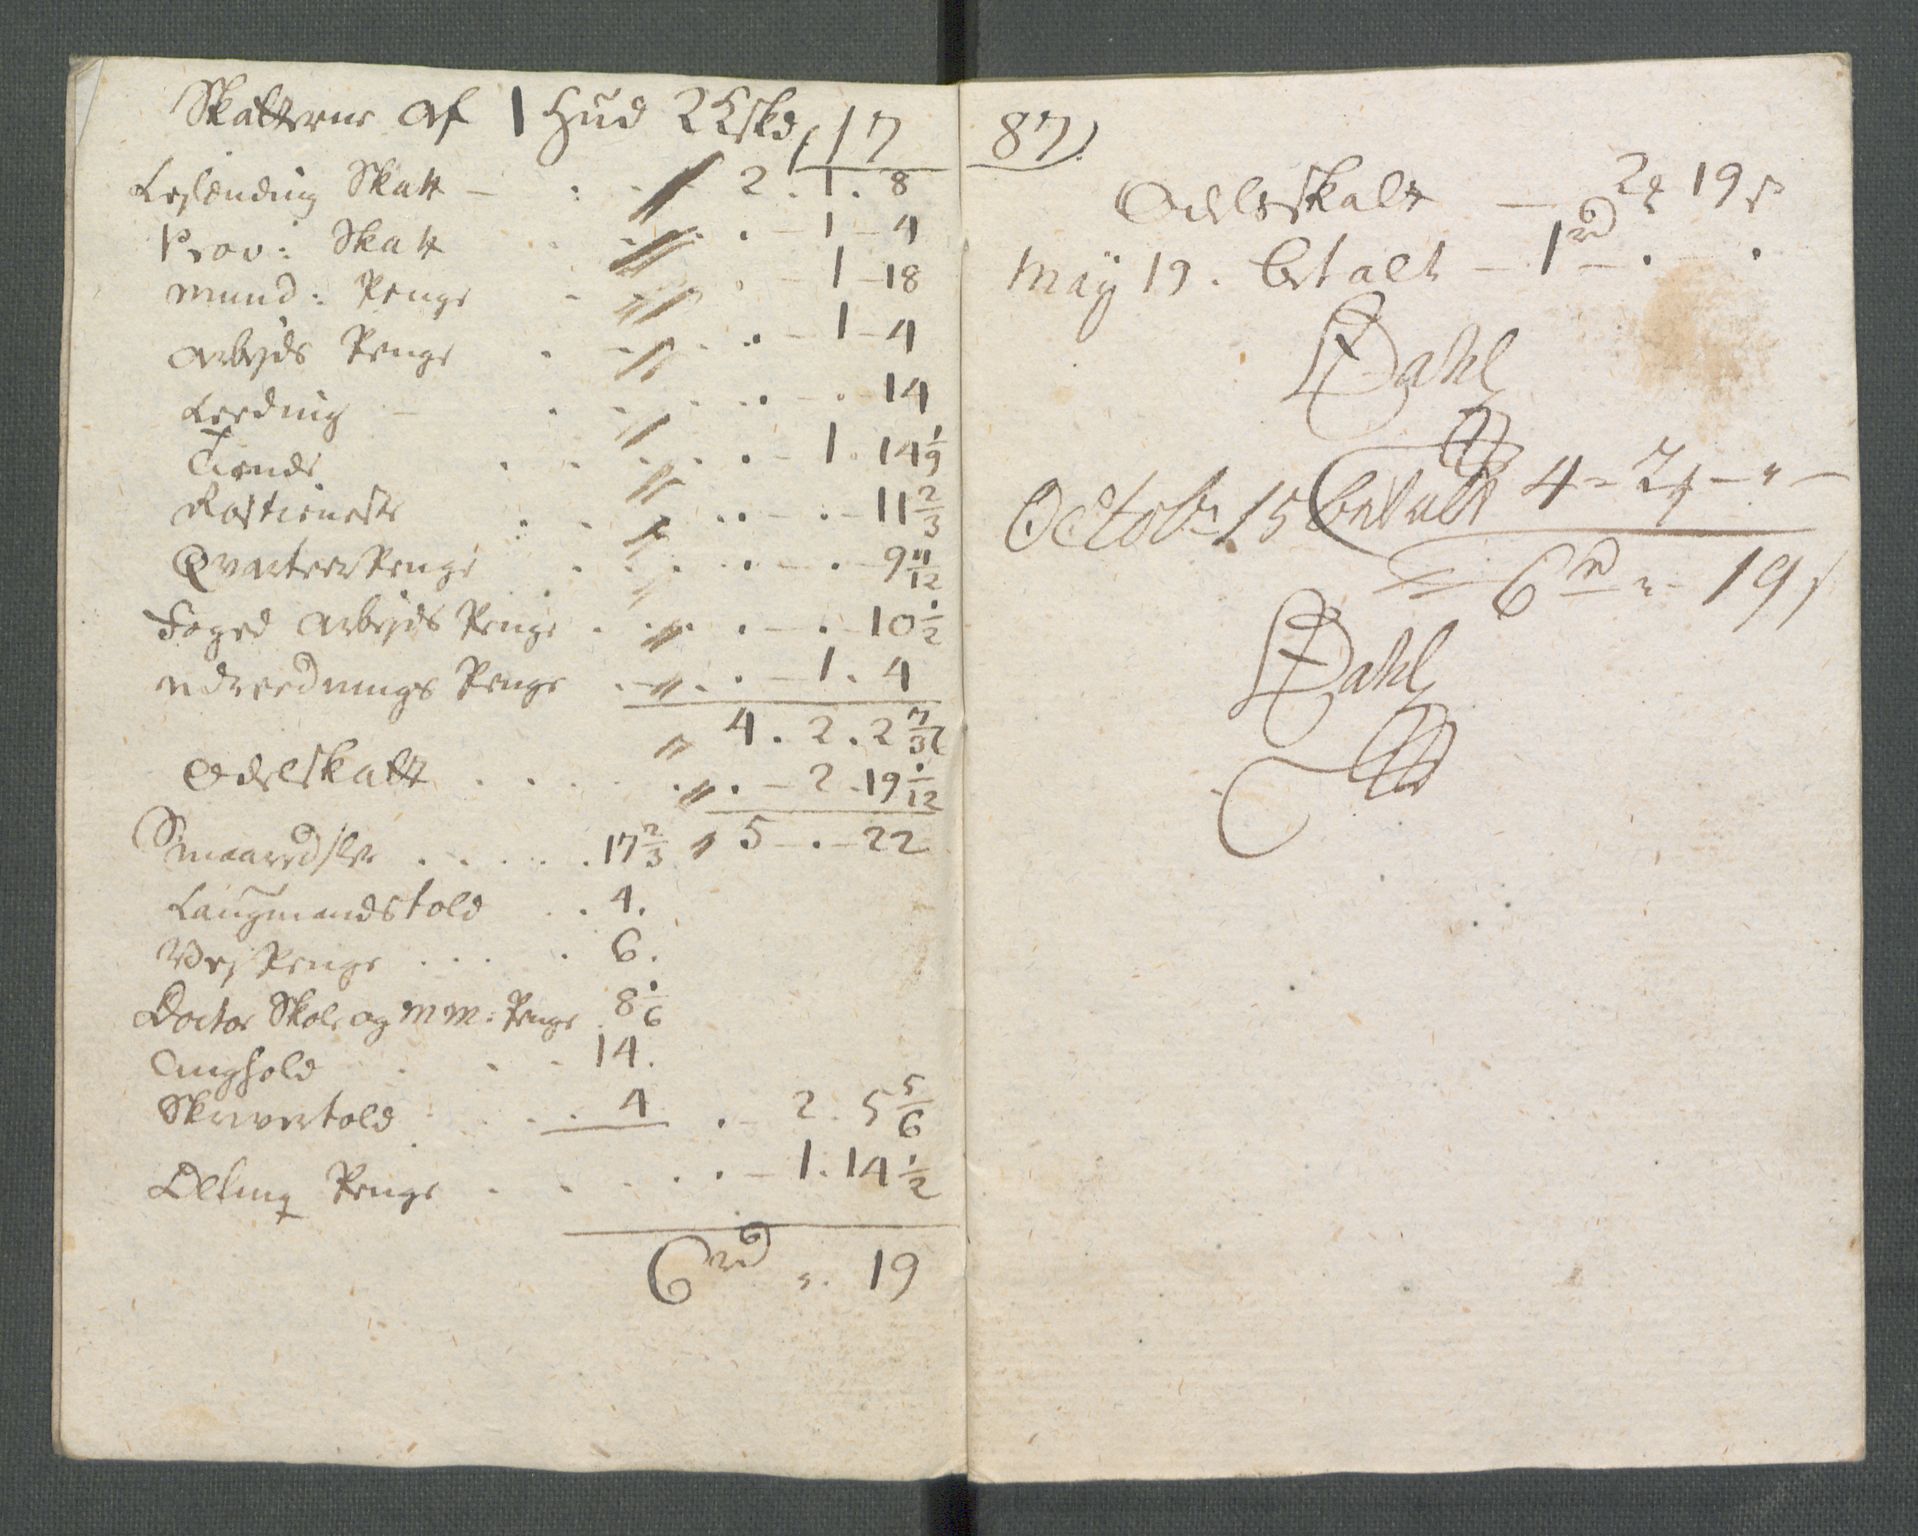 Skatterne af 1 Hud 2 Lskd 17
Leylænding Skatt - 2. 1. 8
Prov: Skatt . - 1 - 4
Mund: Penge . - 1 - 18
Arbejds Penge . - 1 - 4
Leeding - . - . 14
Tiende . - 1. 14 1/9
Rostieneste . - . - 11 2/3
Qvarteer Penge . - . - 9 11/12
Foged Arbejds Penge . - . - 10 1/2
Udreednings Penge . - 1. 4
4. 2. 2
Odelskatt . - 2. 19 1/12
5 - . - 22
Smaaredsler 17 2/3
Laugmandstold 4.
Vej Penge 6.
Doctor Skole og M M: Penge 8 1/6
Tinghold 14.
Skrivertold 4 . - 2. 5 5/6
Deling Penge . - 1. 14 1/2
6 rd . 19
87)
Odelsskatt - 2 19
May 19. betalt - 1 rd - . .
Dahl
Octob: 15 betalt 4 - 2 - " -
6 rd " - 19
Dahl